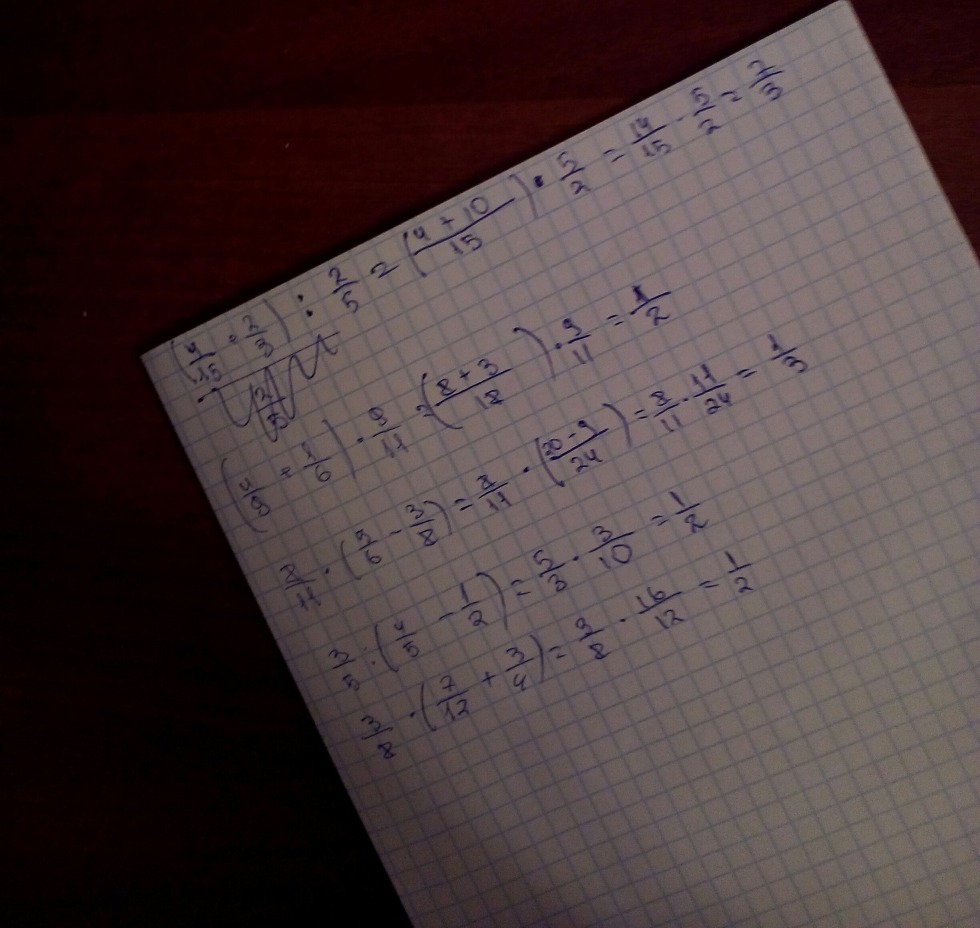 (4/15 + 2/3) : 2/5 = (4 + 10)/15 · 5/2 = 14/15 · 5/2 = 7/3
(4/9 + 1/6) · 9/11 = (8 + 3)/18 · 9/11 = 1/2
8/11 · (5/6 - 3/8) = 8/11 · (20 - 9)/24 = 8/11 · 11/24 = 1/3
3/5 : (4/5 - 1/2) = 5/3 · 3/10 = 1/2
3/8 · (7/12 + 3/4) = 3/8 · 16/12 = 1/2